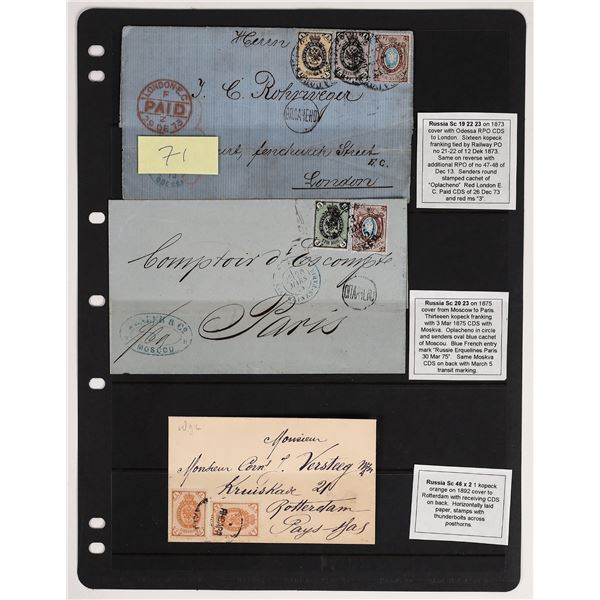 Herrn
J. C. Rohrweger
LONDON E.C.
F
PAID
2
26 DE 73
71
Court, Fenchurch Street
E.C.
London
Russia Sc 19 22 23 on 1873
cover with Odessa RPO CDS
to London. Sixteen kopeck
franking tied by Railway PO
no 21-22 of 12 Dek 1873.
Same on reverse with
additional RPO of no 47-48 of
Dec 13. Senders round
stamped cachet of
"Oplacheno" Red London E.
C. Paid CDS of 26 Dec 73
and red ms "3".
Comptoir d'Escompte
Paris
& Co
MOSCOU
Russia Sc 20 23 on 1875
cover from Moscow to Paris.
Thirteeen kopeck franking
with 3 Mar 1875 CDS with
Moskva. Oplacheno in circle
and senders oval blue cachet
of Moscou. Blue French entry
mark "Russie Erquelines Paris
30 Mar 75". Same Moskva
CDS on back with March 5
transit marking.
Monsieur
Monsieur Corn. J. Versteeg
Kruiskade 21
Rotterdam
Pays-Bas
Russia Sc 46 x 2 1 kopeck
orange on 1892 cover to
Rotterdam with receiving CDS
on back. Horizontally laid
paper, stamps with
thunderbolts across
posthorns.